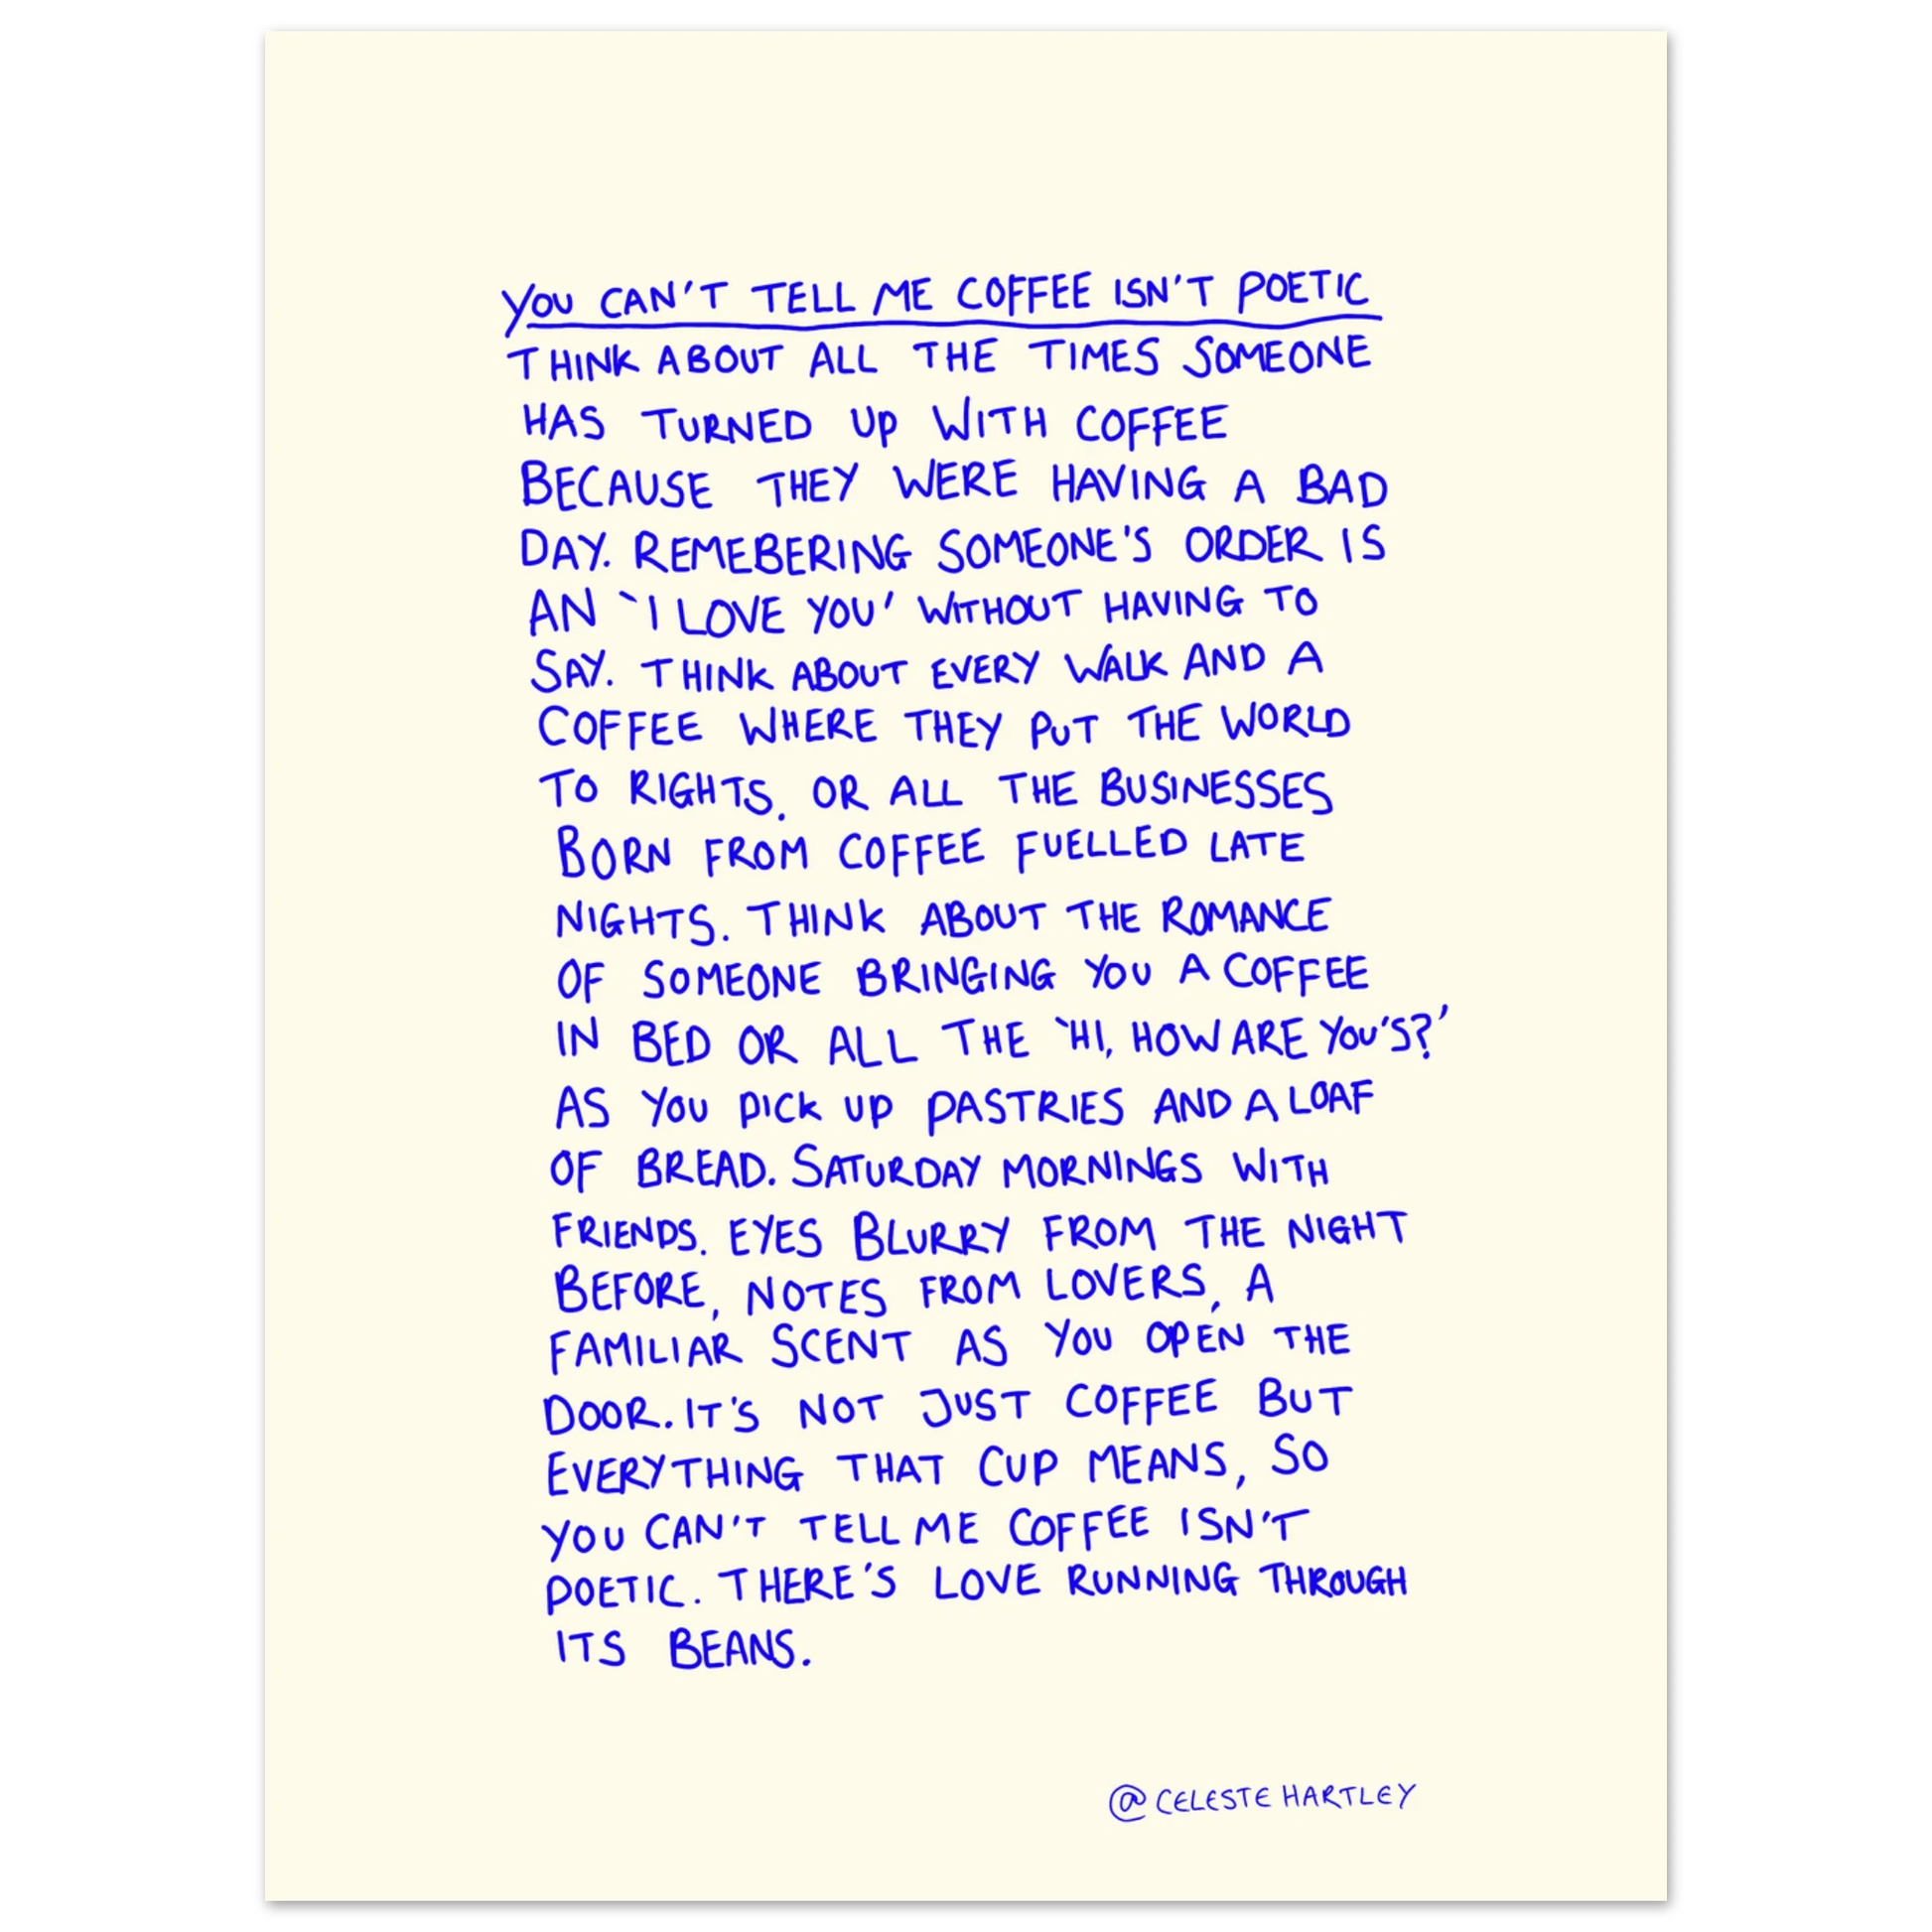 YOU CAN'T TELL ME COFFEE ISN'T POETIC
THINK ABOUT ALL THE TIMES SOMEONE
HAS TURNED UP WITH COFFEE
BECAUSE THEY WERE HAVING A BAD
DAY. REMEBERING SOMEONE'S ORDER IS
AN `I LOVE YOU' WITHOUT HAVING TO
SAY. THINK ABOUT EVERY WALK AND A
COFFEE WHERE THEY PUT THE WORLD
TO RIGHTS. OR ALL THE BUSINESSES
BORN FROM COFFEE FUELLED LATE
NIGHTS. THINK ABOUT THE ROMANCE
OF SOMEONE BRINGING YOU A COFFEE
IN BED OR ALL THE `HI, HOW ARE YOU'S?'
AS YOU PICK UP PASTRIES AND A LOAF
OF BREAD. SATURDAY MORNINGS WITH
FRIENDS. EYES BLURRY FROM THE NIGHT
BEFORE, NOTES FROM LOVERS, A
FAMILIAR SCENT AS YOU OPEN THE
DOOR. IT'S NOT JUST COFFEE BUT
EVERYTHING THAT CUP MEANS, SO
YOU CAN'T TELL ME COFFEE ISN'T
POETIC. THERE'S LOVE RUNNING THROUGH
ITS BEANS.
@CELESTE HARTLEY